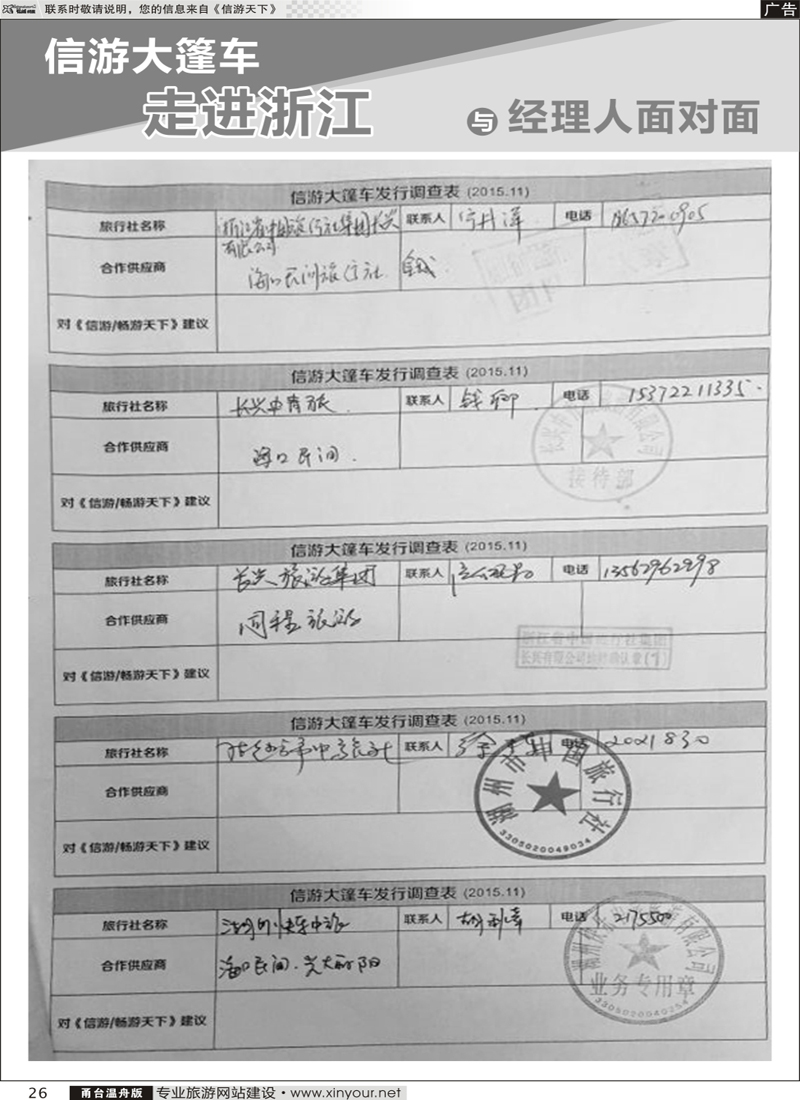 联系时敬请说明，您的信息来自《信游天下》
广告
信游大篷车
走进浙江
与 经理人面对面
信游大篷车发行调查表 (2015.11)
旅行社名称 浙江省中国旅行社集团长兴有限公司 联系人 电话
合作供应商 海口民间旅行社
对《信游/畅游天下》建议
信游大篷车发行调查表 (2015.11)
旅行社名称 长兴中青旅 联系人 电话 15372211335
合作供应商 海口民间
接待部
对《信游/畅游天下》建议
信游大篷车发行调查表 (2015.11)
旅行社名称 长兴旅游集团 联系人 电话 13562962298
合作供应商 同程旅游
对《信游/畅游天下》建议
信游大篷车发行调查表 (2015.11)
旅行社名称 联系人 电话 2021830
合作供应商
湖州市中国旅行社
3305020049034
对《信游/畅游天下》建议
信游大篷车发行调查表 (2015.11)
旅行社名称 联系人 电话 2175500
合作供应商 海口民间
业务专用章
对《信游/畅游天下》建议
26 甬台温舟版 专业旅游网站建设·www.xinyour.net